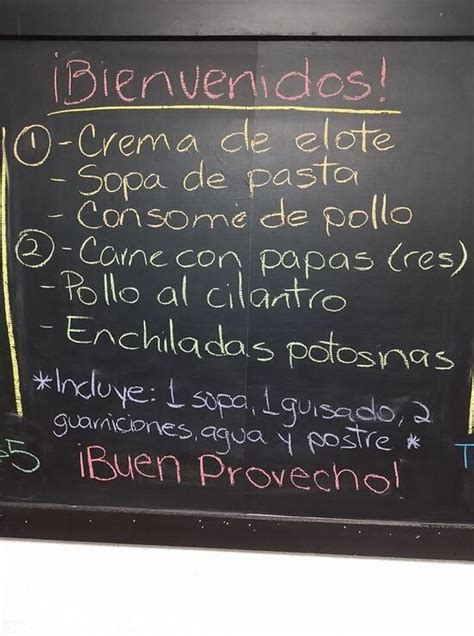 ¡Bienvenidos!
1 - Crema de elote
- Sopa de pasta
- Consomé de pollo
2 - Carne con papas (res)
- Pollo al cilantro
- Enchiladas potosinas
*Incluye: 1 sopa, 1 guisado, 2
guarniciones, agua y postre *
¡Buen Provecho!